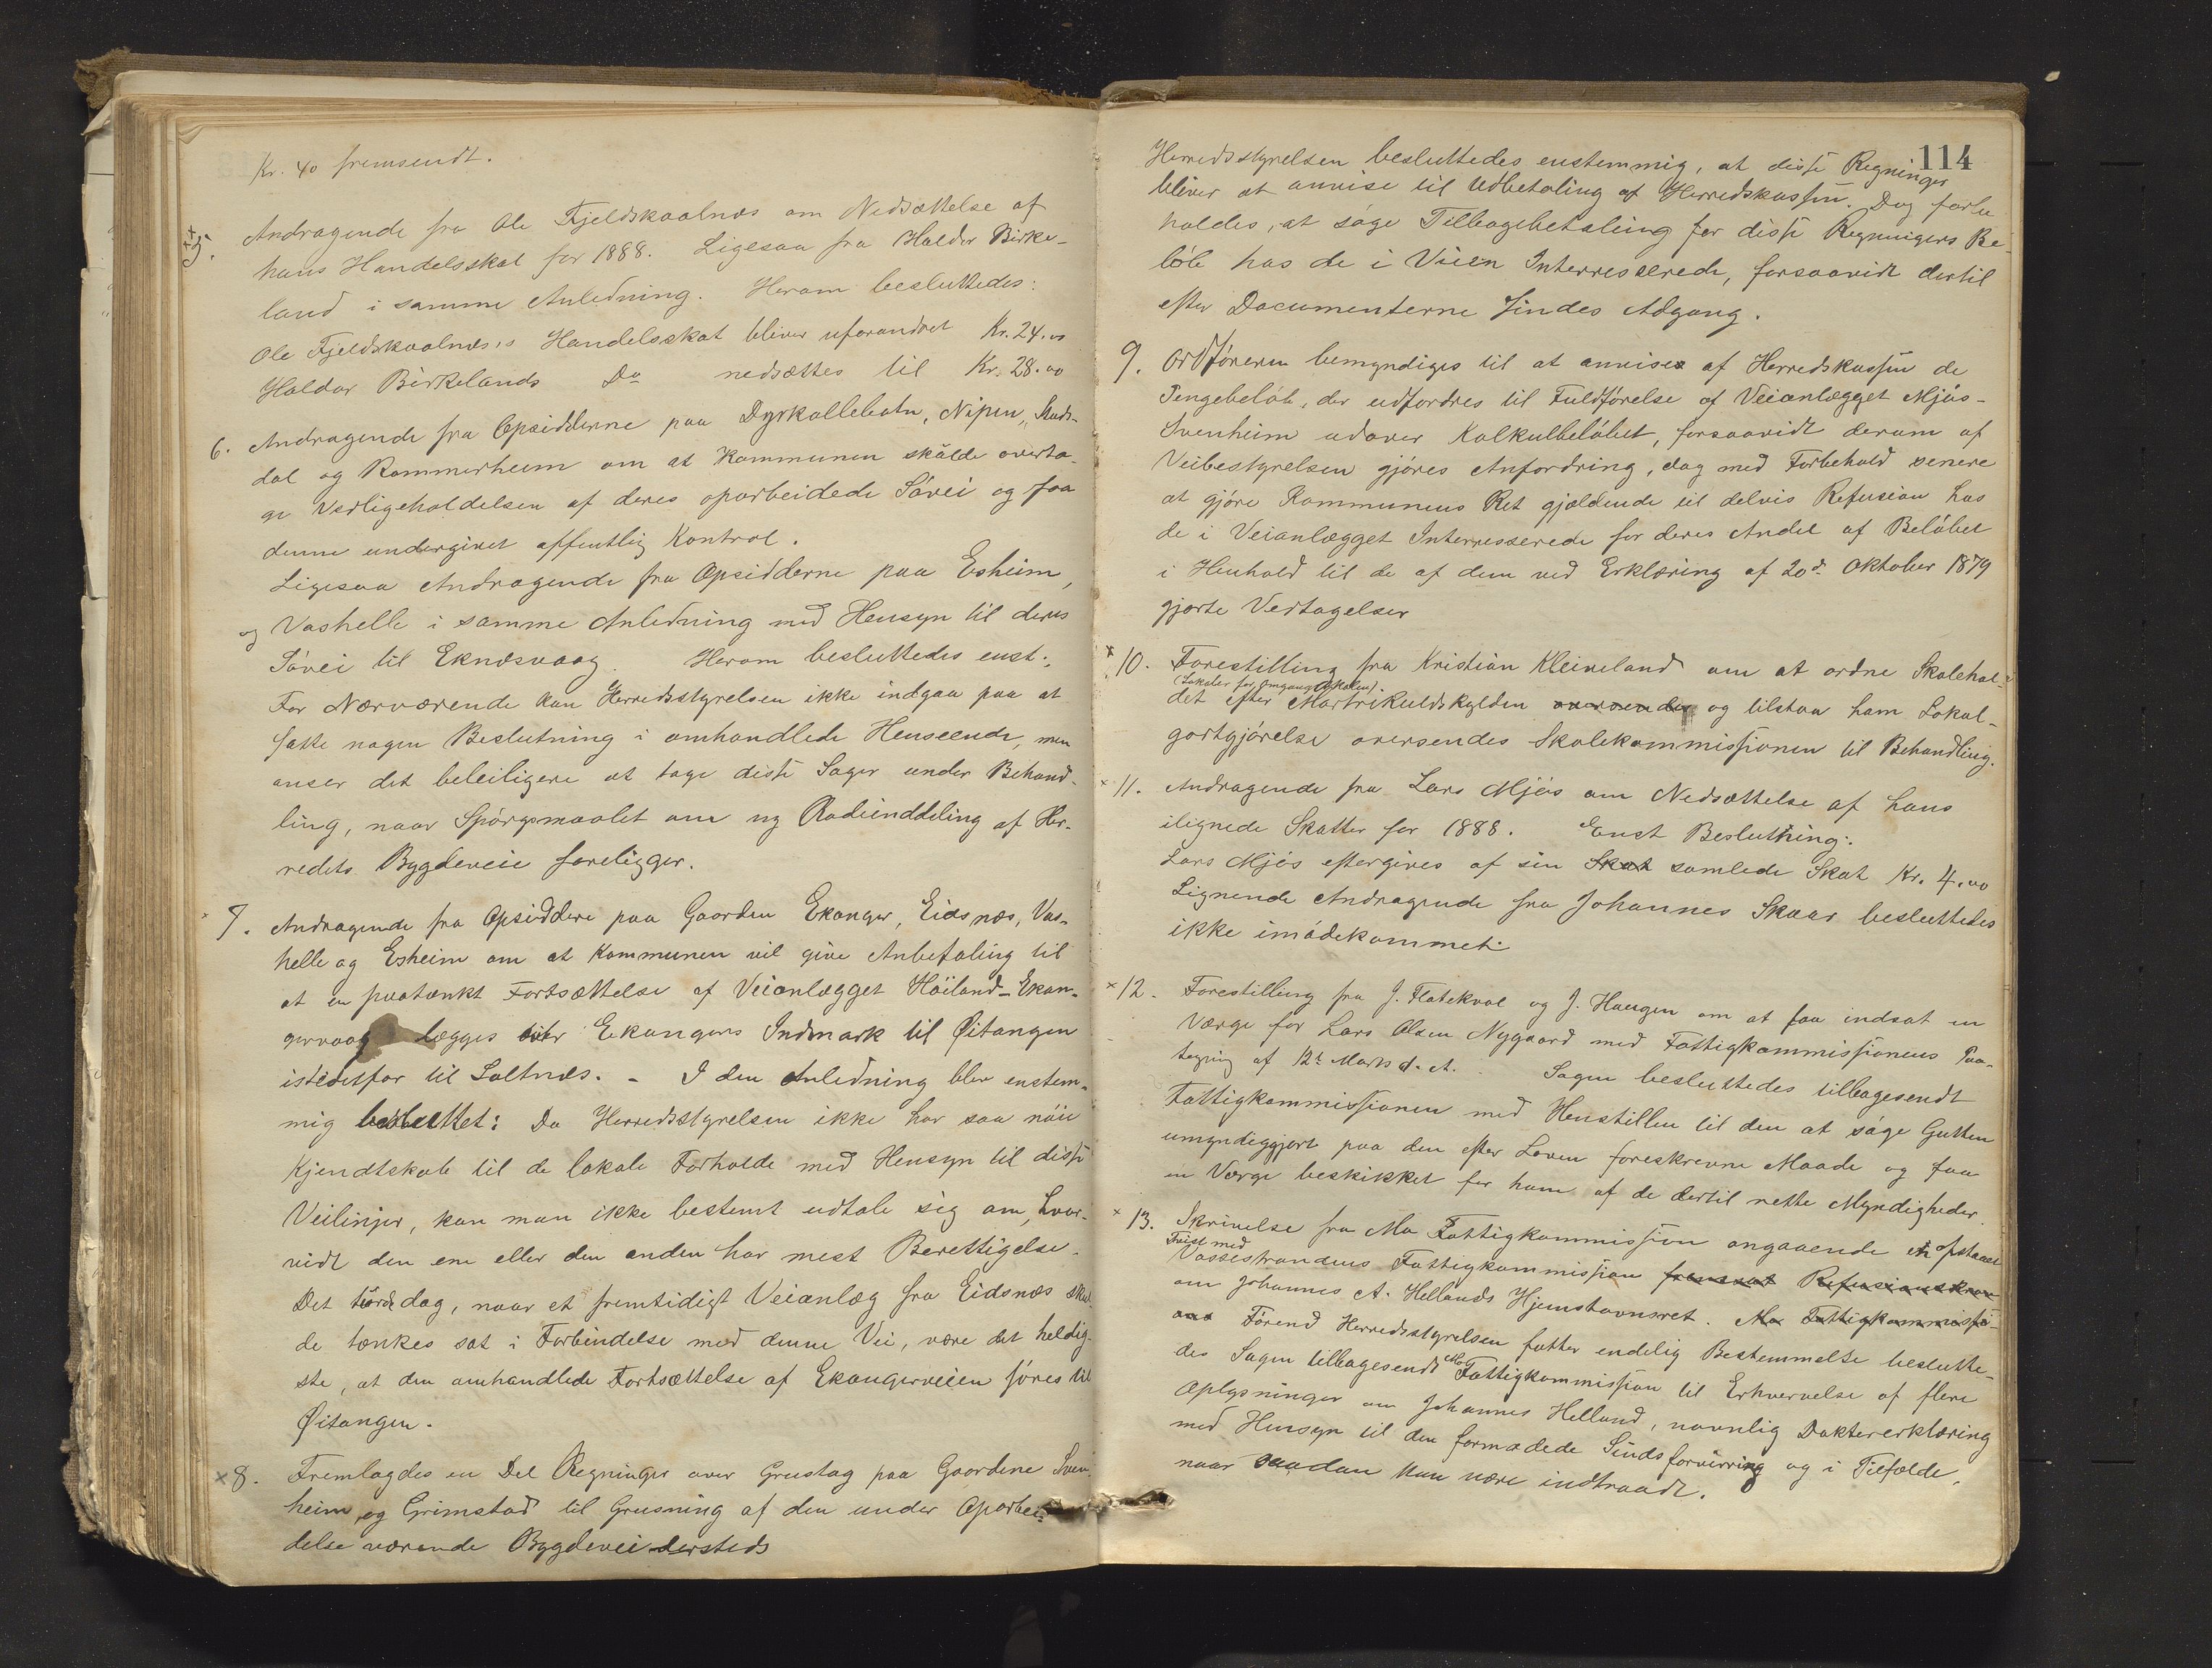 Kr. 40 fremsendt.
5. Andragende fra Ole Fjeldskaalnæs om Nedsættelse af
hans Handelsskat for 1888. Ligesaa fra Haldor Birke-
land i samme Anledning. Herom besluttedes:
Ole Fjeldskaalnæs's Handelsskat bliver uforandret Kr. 24.00
Haldor Birkelands Do nedsættes til Kr. 28.00
6. Andragende fra Opsidderne paa Dyrkollebotn, Nipen,
dal og Rommerheim om at Kommunen skulde overta-
ge Vedligeholdelsen af deres oparbeidede Sövei og faa
denne undergivet offentlig Kontrol.
Ligesaa Andragende fra Opsidderne paa Esheim,
og Vashelle i samme Anledning med Hensyn til deres
Sövei til Eknæsvaag. Herom besluttedes enst:,
For Nærværende kan Herredsstyrelsen ikke indgaa paa at
fatte nogen Beslutning i omhandlede Henseende, men
anser det beleiligere at tage disse Sager under Behand-
ling, naar Spörgsmaalet om ny Rodeinddeling af Her-
redets Bygdeveie foreligger.
7. Andragende fra Opsiddere paa Gaarden Ekanger, Eidsnæs, Vas-
helle og Esheim om at Kommunen vil give Anbefaling til
at en paatænkt Fortsættelse af Veianlægget Höiland-Ekan-
gervaag lægges over Ekangers Indmark til Öitangen
istedetfor til Saltnæs. - I den Anledning blev enstem-
mig besluttet: Da Herredsstyrelsen ikke har saa nöie
Kjendtskab til de lokale Forholde med Hensyn til disse
Veilinjer, kan man ikke bestemt udtale sig om, hvor-
vidt den ene eller den anden har mest Berettigelse.
Det törde dog, naar et fremtidigt Veianlæg fra Eidsnæs skul-
de tænkes sat i Forbindelse med denne Vei, være det heldig-
ste, at den omhandlede Fortsættelse af Ekangerveien föres til
Öitangen.
8. Fremlagdes en Del Regninger over Grustag paa Gaardene Sven-
heim og Grimstad til Grusning af den under Oparbei-
delse værende Bygdevei dersteds
114
Herredsstyrelsen besluttedes enstemmig, at disse Regninger
bliver at anvise til Udbetaling af Herredskassen. Dog forbe
holdes, at söge Tilbagebetaling for disse Regningers Be-
löb hos de i Veien Interresserede, forsaavidt dertil
efter Documenterne findes Adgang.
9. Ordföreren bemyndiges til at anvise af Herredskassen de
Pengebelöb, der udfordres til Fuldförelse af Veianlægget Mjös-
Svenheim udover Kalkulbelöbet, forsaavidt derom af
Veibestyrelsen gjöres Anfordring, dog med Forbehold senere
at gjöre Kommunens Ret gjældende til delvis Refusion hos
de i Veianlægget Interresserede for deres Andel af Belöbet
i Henhold til de af dem ved Erklæring af 20de Oktober 1879
gjorte Vedtagelser
10. Forestilling fra Kristian Kleiveland om at ordne Skolehol-
(Lokaler for Omgangsskolen).
det efter Martrikulskylden oversendes og tilstaa ham Lokal-
godtgjörelse oversendes Skolekommissionen til Behandling.
11. Andragende fra Lars Mjös om Nedsættelse af hans
ilignede Skatter for 1888. Enst Beslutning:
Lars Mjös eftergives af sin Skat samlede Skat Kr. 4.00
Lignende Andragende fra Johannes Skaar besluttedes
ikke imödekommet.
12. Forestilling fra J. Flatekval og J. Haugen om at faa indsat en
Værge for Lars Olsen Nygaard med Fattigkommissionens Paa-
tegning af 12te Marts d. A. Sagen besluttedes tilbagesendt
Fattigkommissionen med Henstillen til den at söge Gutten
umyndiggjort paa den efter Loven foreskrevne Maade og faa
en Værge beskikket for ham af de dertil rette Myndigheder.
13. Skrivelse fra Mo Fattigkommission angaaende en opstaaet
Tvist med
Vossestrandens Fattigkommission fremsat Refusionskrav
om Johannes A. Hellands Hjemstavnsret. Mo Fattigkommissi-
Förend Herredsstyrelsen fatter endelig Bestemmelse beslutte-
des Sagen tilbagesendt Mo Fattigkommission til Erhvervelse af flere
Oplysninger om Johannes Helland, navnlig Doktererklæring
med Hensyn til den formodede Sindsforvirring og i Tilfælde,
naar saadan kan være indtraadt.